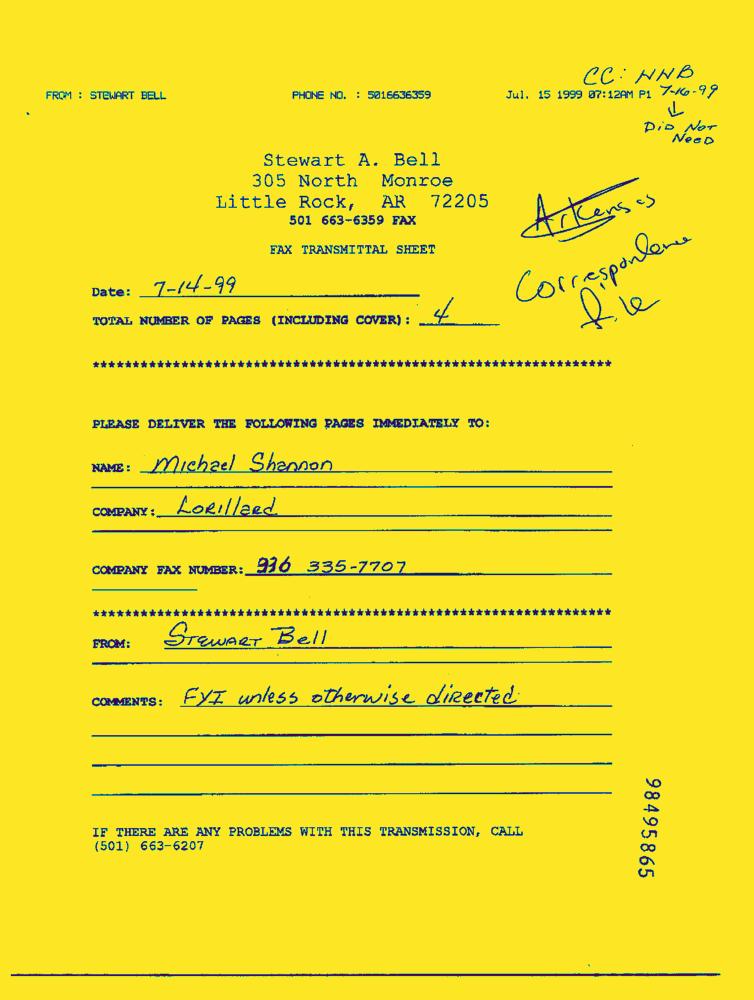 CC: HNB
FROM : STEWART BELL PHONE NO. : 5016636359 Jul. 15 1999 07:12AM P1 7-16-99
↓
DID NOT
NEED
Stewart A. Bell
305 North Monroe
Little Rock, AR 72205
501 663-6359 FAX
Arkansas
FAX TRANSMITTAL SHEET
Correspondence
file
Date: 7-14-99
TOTAL NUMBER OF PAGES (INCLUDING COVER): 4
*****************************************************************
PLEASE DELIVER THE FOLLOWING PAGES IMMEDIATELY TO:
NAME: Michael Shannon
COMPANY: Lorillard
COMPANY FAX NUMBER: 336 335-7707
*****************************************************************
FROM: Stewart Bell
COMMENTS: FYI unless otherwise directed
IF THERE ARE ANY PROBLEMS WITH THIS TRANSMISSION, CALL
(501) 663-6207
98495865